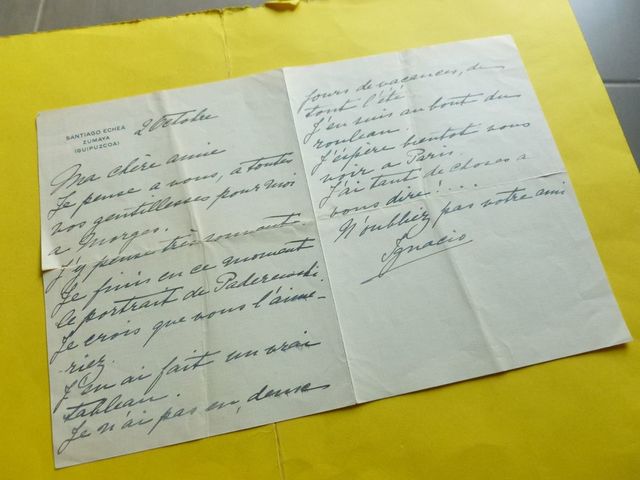 SANTIAGO ECHEA
ZUMAYA
(GUIPUZCOA)
2 Octobre
Ma chère amie
Je pense a vous, a toutes
vos gentillesses pour moi
a Morges.
J'y pense très souvent
Je finis en ce moment
le portrait de Paderewski
Je crois que vous l'aime-
riez.
J'en ai fait un vrai
tableau.
Je n'ai pas eu, deux
jours de vacances, de
tout l'été
J'en suis au bout du
rouleau.
J'espère bientot vous
voir a Paris.
J'ai tant de choses a
vous dire!....
N'oubliez pas votre ami
Ignacio